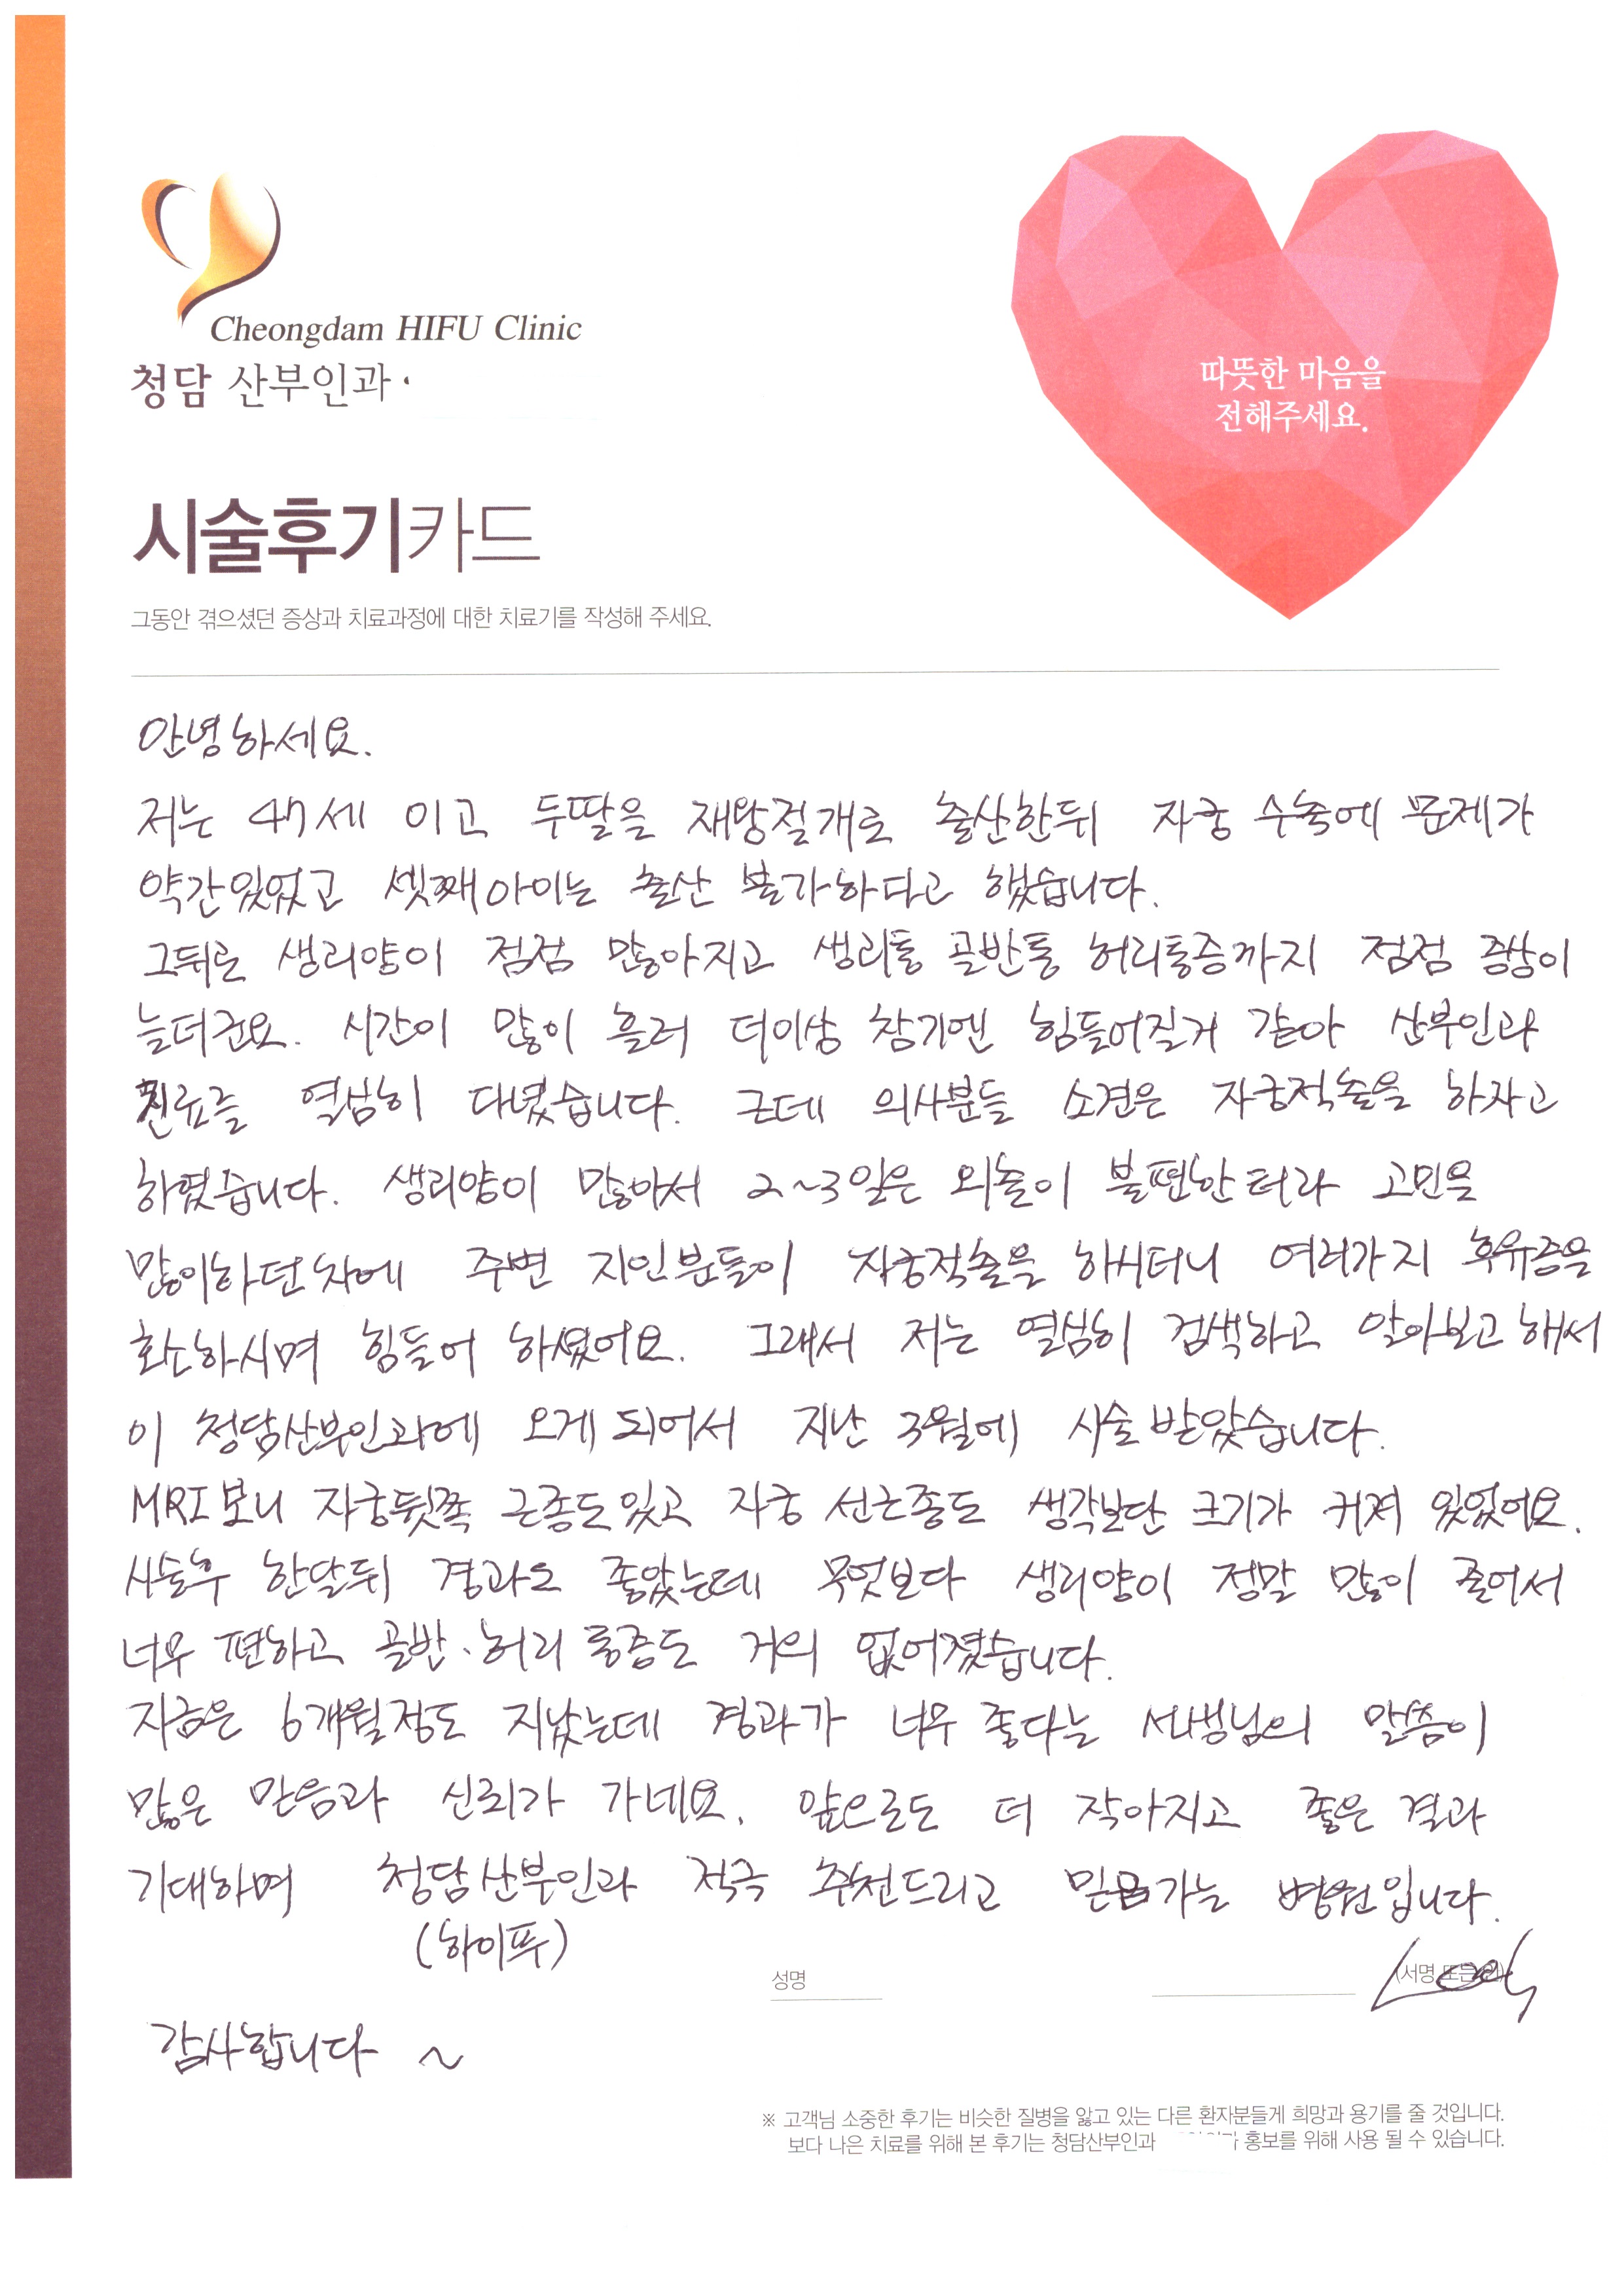 Cheongdam HIFU Clinic
청담 산부인과
따뜻한 마음을
전해주세요.
시술후기카드
그동안 겪으셨던 증상과 치료과정에 대한 치료기를 작성해 주세요.
안녕하세요.
저는 47세 이고 두딸을 재왕절개로 출산한뒤 자궁 수축에 문제가
약간있었고 셋째아이는 출산 불가하다고 했습니다.
그뒤로 생리양이 점점 많아지고 생리통 골반통 허리통증까지 점점 증상이
늘더권요. 시간이 많이 흘러 더이상 참기엔 힘들어질거 같아 산부인과
진료를 열심히 다녔습니다. 근데 의사분들 소견은 자궁적출을 하자고
하였습니다. 생리양이 많아서 2~3일은 외출이 불편한터라 고민을
많이하던차에 주변 지인분들이 자궁적출을 하시더니 여러가지 후유증을
호소하시며 힘들어 하셨어요. 그래서 저는 열심히 검색하고 알아보고해서
이 청담산부인과에 오게 되어서 지난 3월에 시술받았습니다.
MRI보니 자궁뒷쪽 근종도있고 자궁 선근종도 생각보단 크기가 커져 있었어요.
시술후 한달뒤 경과도 좋았는데 무엇보다 생리양이 정말 많이 줄어서
너무 편하고 골반·허리 통증도 거의 없어졌습니다.
지금은 6개월정도 지났는데 경과가 너무 좋다는 선생님의 말씀이
많은 믿음과 신뢰가 가네요. 앞으로도 더 작아지고 좋은 결과
기대하며 청담산부인과 적극 추천드리고 믿음가는 병원입니다.
(하이푸)
성명
(서명 또는 인)
감사합니다 ~
※ 고객님 소중한 후기는 비슷한 질병을 앓고 있는 다른 환자분들게 희망과 용기를 줄 것입니다.
보다 나은 치료를 위해 본 후기는 청담산부인과 홍보를 위해 사용 될 수 있습니다.